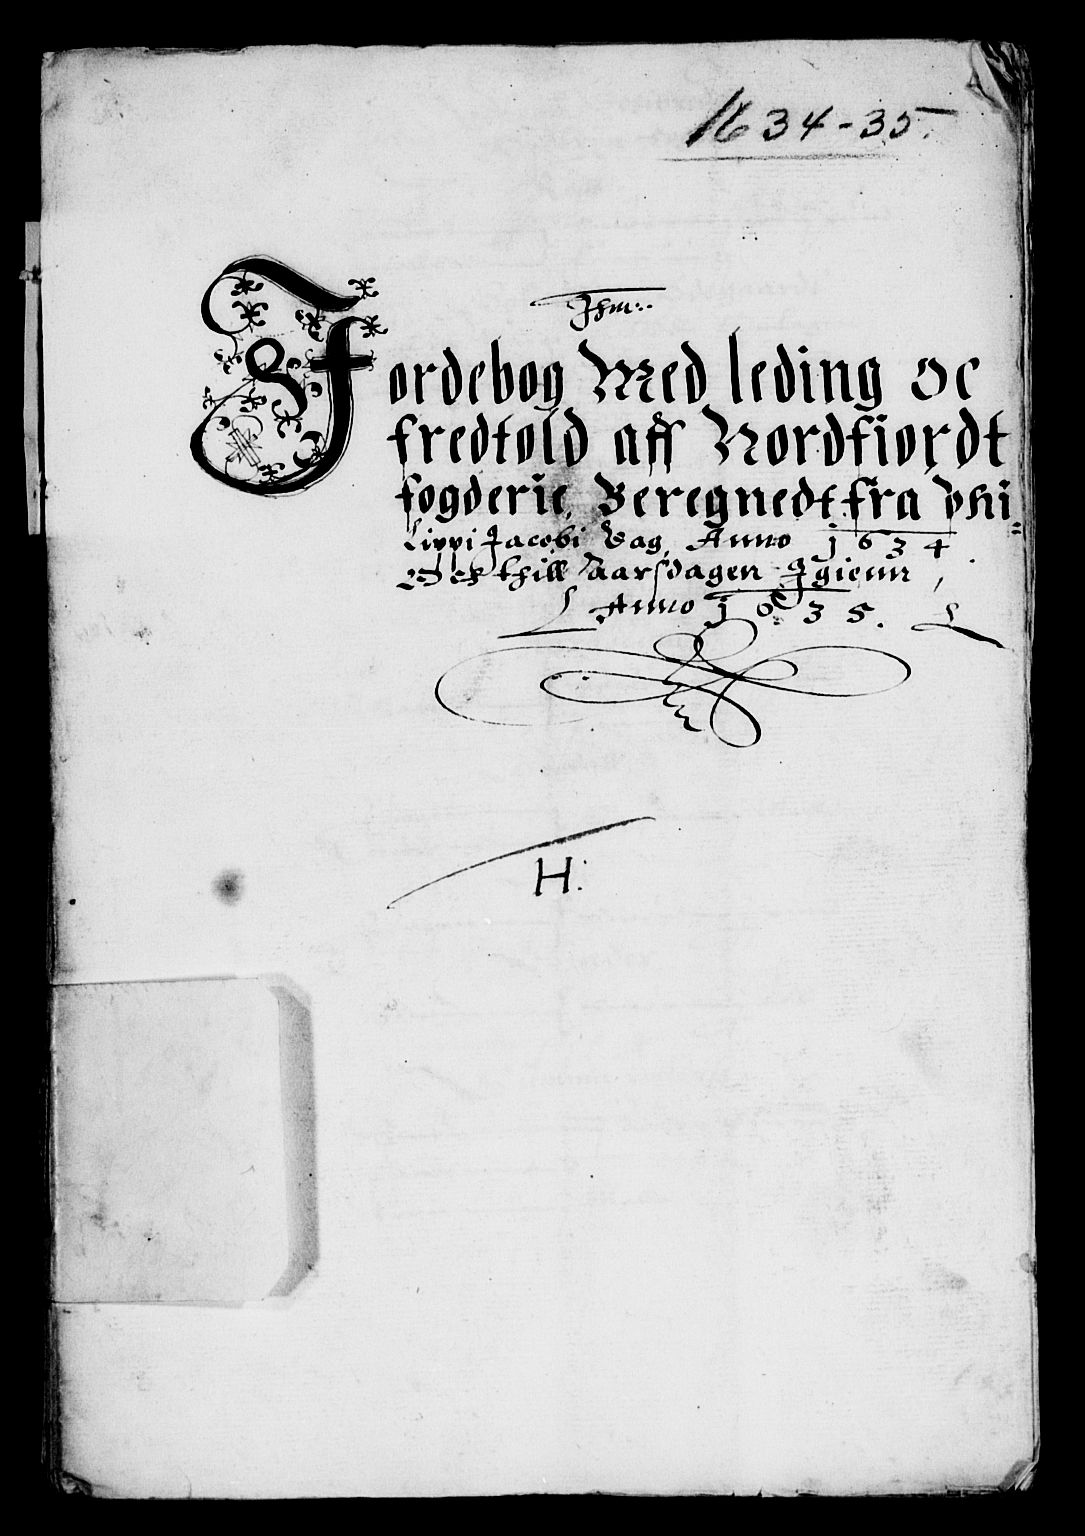 1634-35.
Jhm:
Jordebog Med leding oc
fredtold aff Nordfiordt
fogderie, Beregnedt fra Phi=
lippi Jacobi Dag, Anno 1634
Och thill Aarsdagen Jgienn,
Anno 1635.
H: